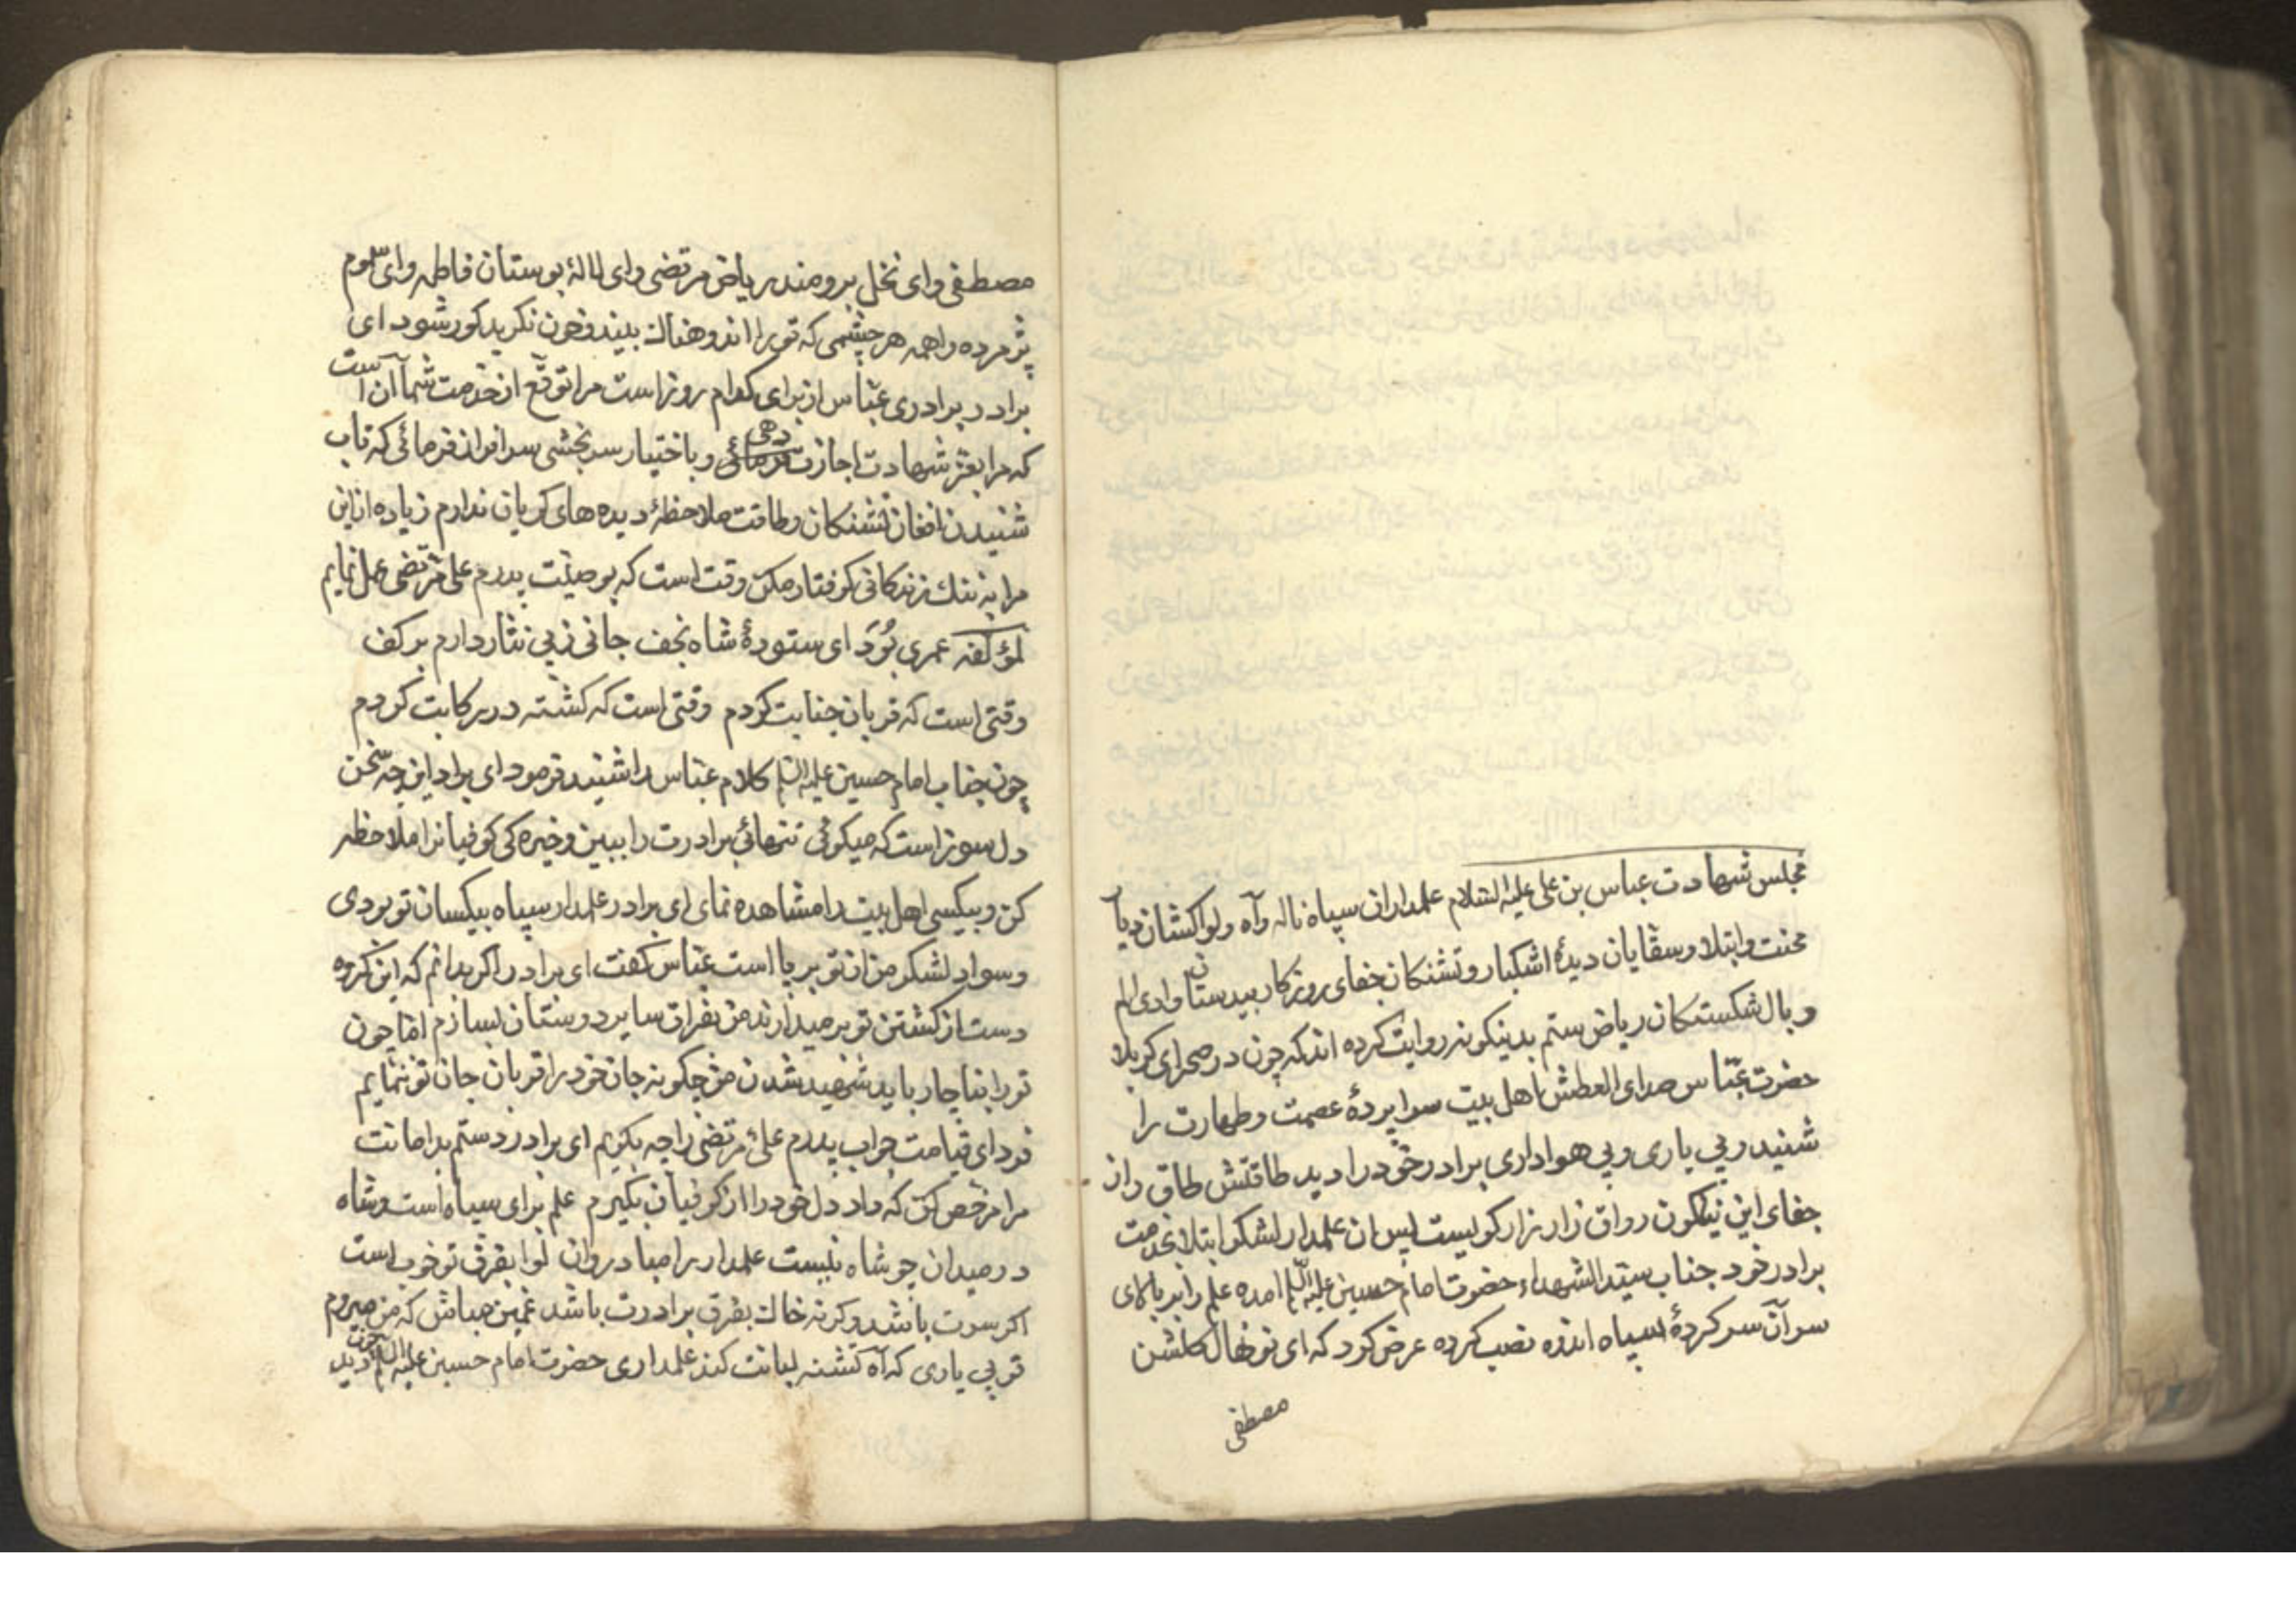 مجلس شهادت عباس بن علی علیه السلام علمداران سپاه ناله وآه ولواکشان دیا
محنت وابتلا وسقایان دیدۀ اشکبار وتشنکان جفای روزکار بیدستان وادی الم
وبال شکستکان ریاض ستم بدینکونه روایت کرده اند که چون در صحرای کربلا
حضرت عباس صدای العطش اهل بیت سراپردۀ عصمت وطهارت را
شنید وبی یاری وبی هواداری برادر خود را دید طاقتش طاق وان
جفای این نیلکون رواق زار زار کریست پس ان علمدار لشکر ابتلا بخدمت
برادر خود جناب سید الشهداء حضرت امام حسین علیه السلم امده علم را بر بالای
سر آن سر کردۀ سپاه اندوه نصب کرده عرض کرد که ای نونهال کلشن
مصطفی
مصطفی وای نخل برومند ریاض مرتضی وای لالۀ بوستان فاطمه وای سموم
پژمرده واهمه هر چشمی که تو را اندوهناک بیند وخون نکرید کور شود ای
برادر برادری عباس از برای کدام روز است مرا توقع از خدمت شما آن است
که مرا بعز شهادت اجازت دهی وباختیار سر بخشی سرافراز فرمائی که تاب
شنیدن افغان تشنکان وطاقت ملاحظۀ دیده های کریان ندارم زیاده از این
مرا به ننک زندکانی کرفتار مکن وقت است که بوصیت پدرم علی مرتضی عمل نمایم
لمؤلفه عمری بُوَد ای ستودۀ شاه نجف جانی ز پی نثار دارم بر کف
وقتی است که قربان جنابت کردم وقتی است که کشته در رکابت کردم
چون جناب امام حسین علیه السلم کلام عباس را شنید فرمود ای برادر این چه سخن
دل سوز است که میکوئی تنهائی برادرت را ببین وخیره کی کوفیان را ملاحظه
کن وبیکسی اهل بیت را مشاهده نمای ای برادر علمدار سپاه بیکسان تو بودی
وسواد لشکر من از تو بر پا است عباس کفت ای برادر اکر بدانم که این کروه
دست از کشتن تو بر میدارند من بفراق سایر دوستان بسازم اما چون
تو را بناچار باید شهید شدن من چکونه جان خود را قربان جان تو ننمایم
فردای قیامت جواب پدرم علی مرتضی را چه بکویم ای برادر دستم بدامانت
مرا مرخص کن که داد دل خود را از کوفیان بکیرم علم برای سپاه است وشاه
در میدان چو شاه نیست علمدار را مباد روان لوا بفرق تو خوب است
اکر سوت باشد وکرنه خاک بفرق برادرت باشد غمین مباش که من میروم
تو بی یاری که آه تشنه لبانت کند علمداری حضرت امام حسین علیه السلم چون دید